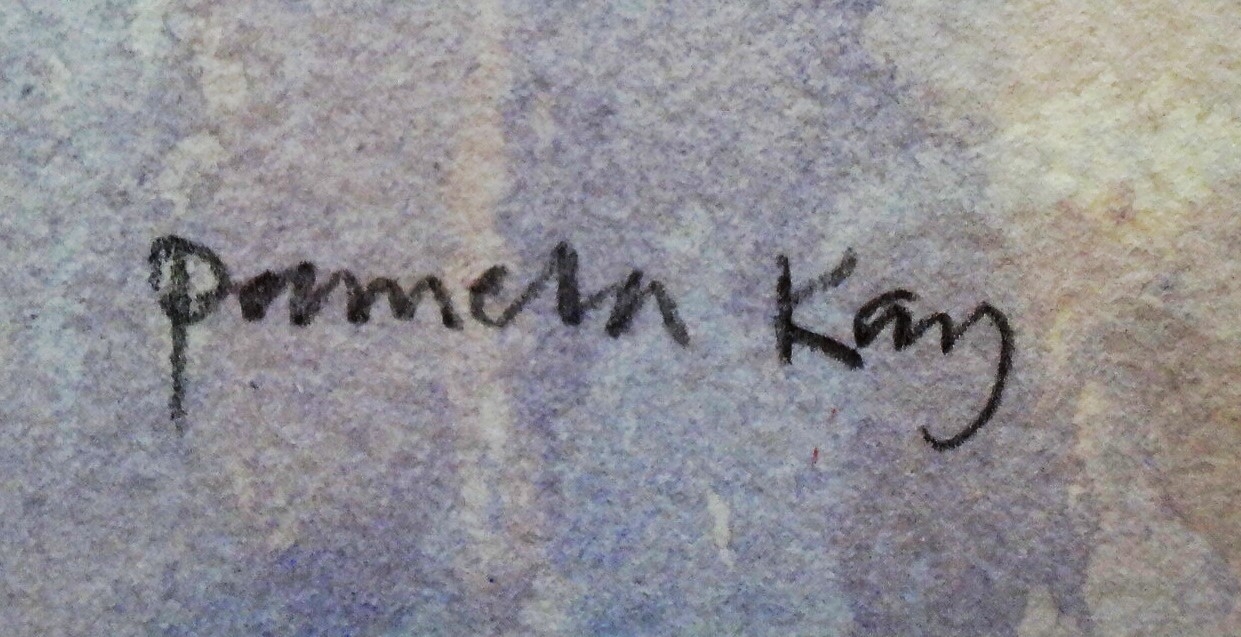 Pamela Kay